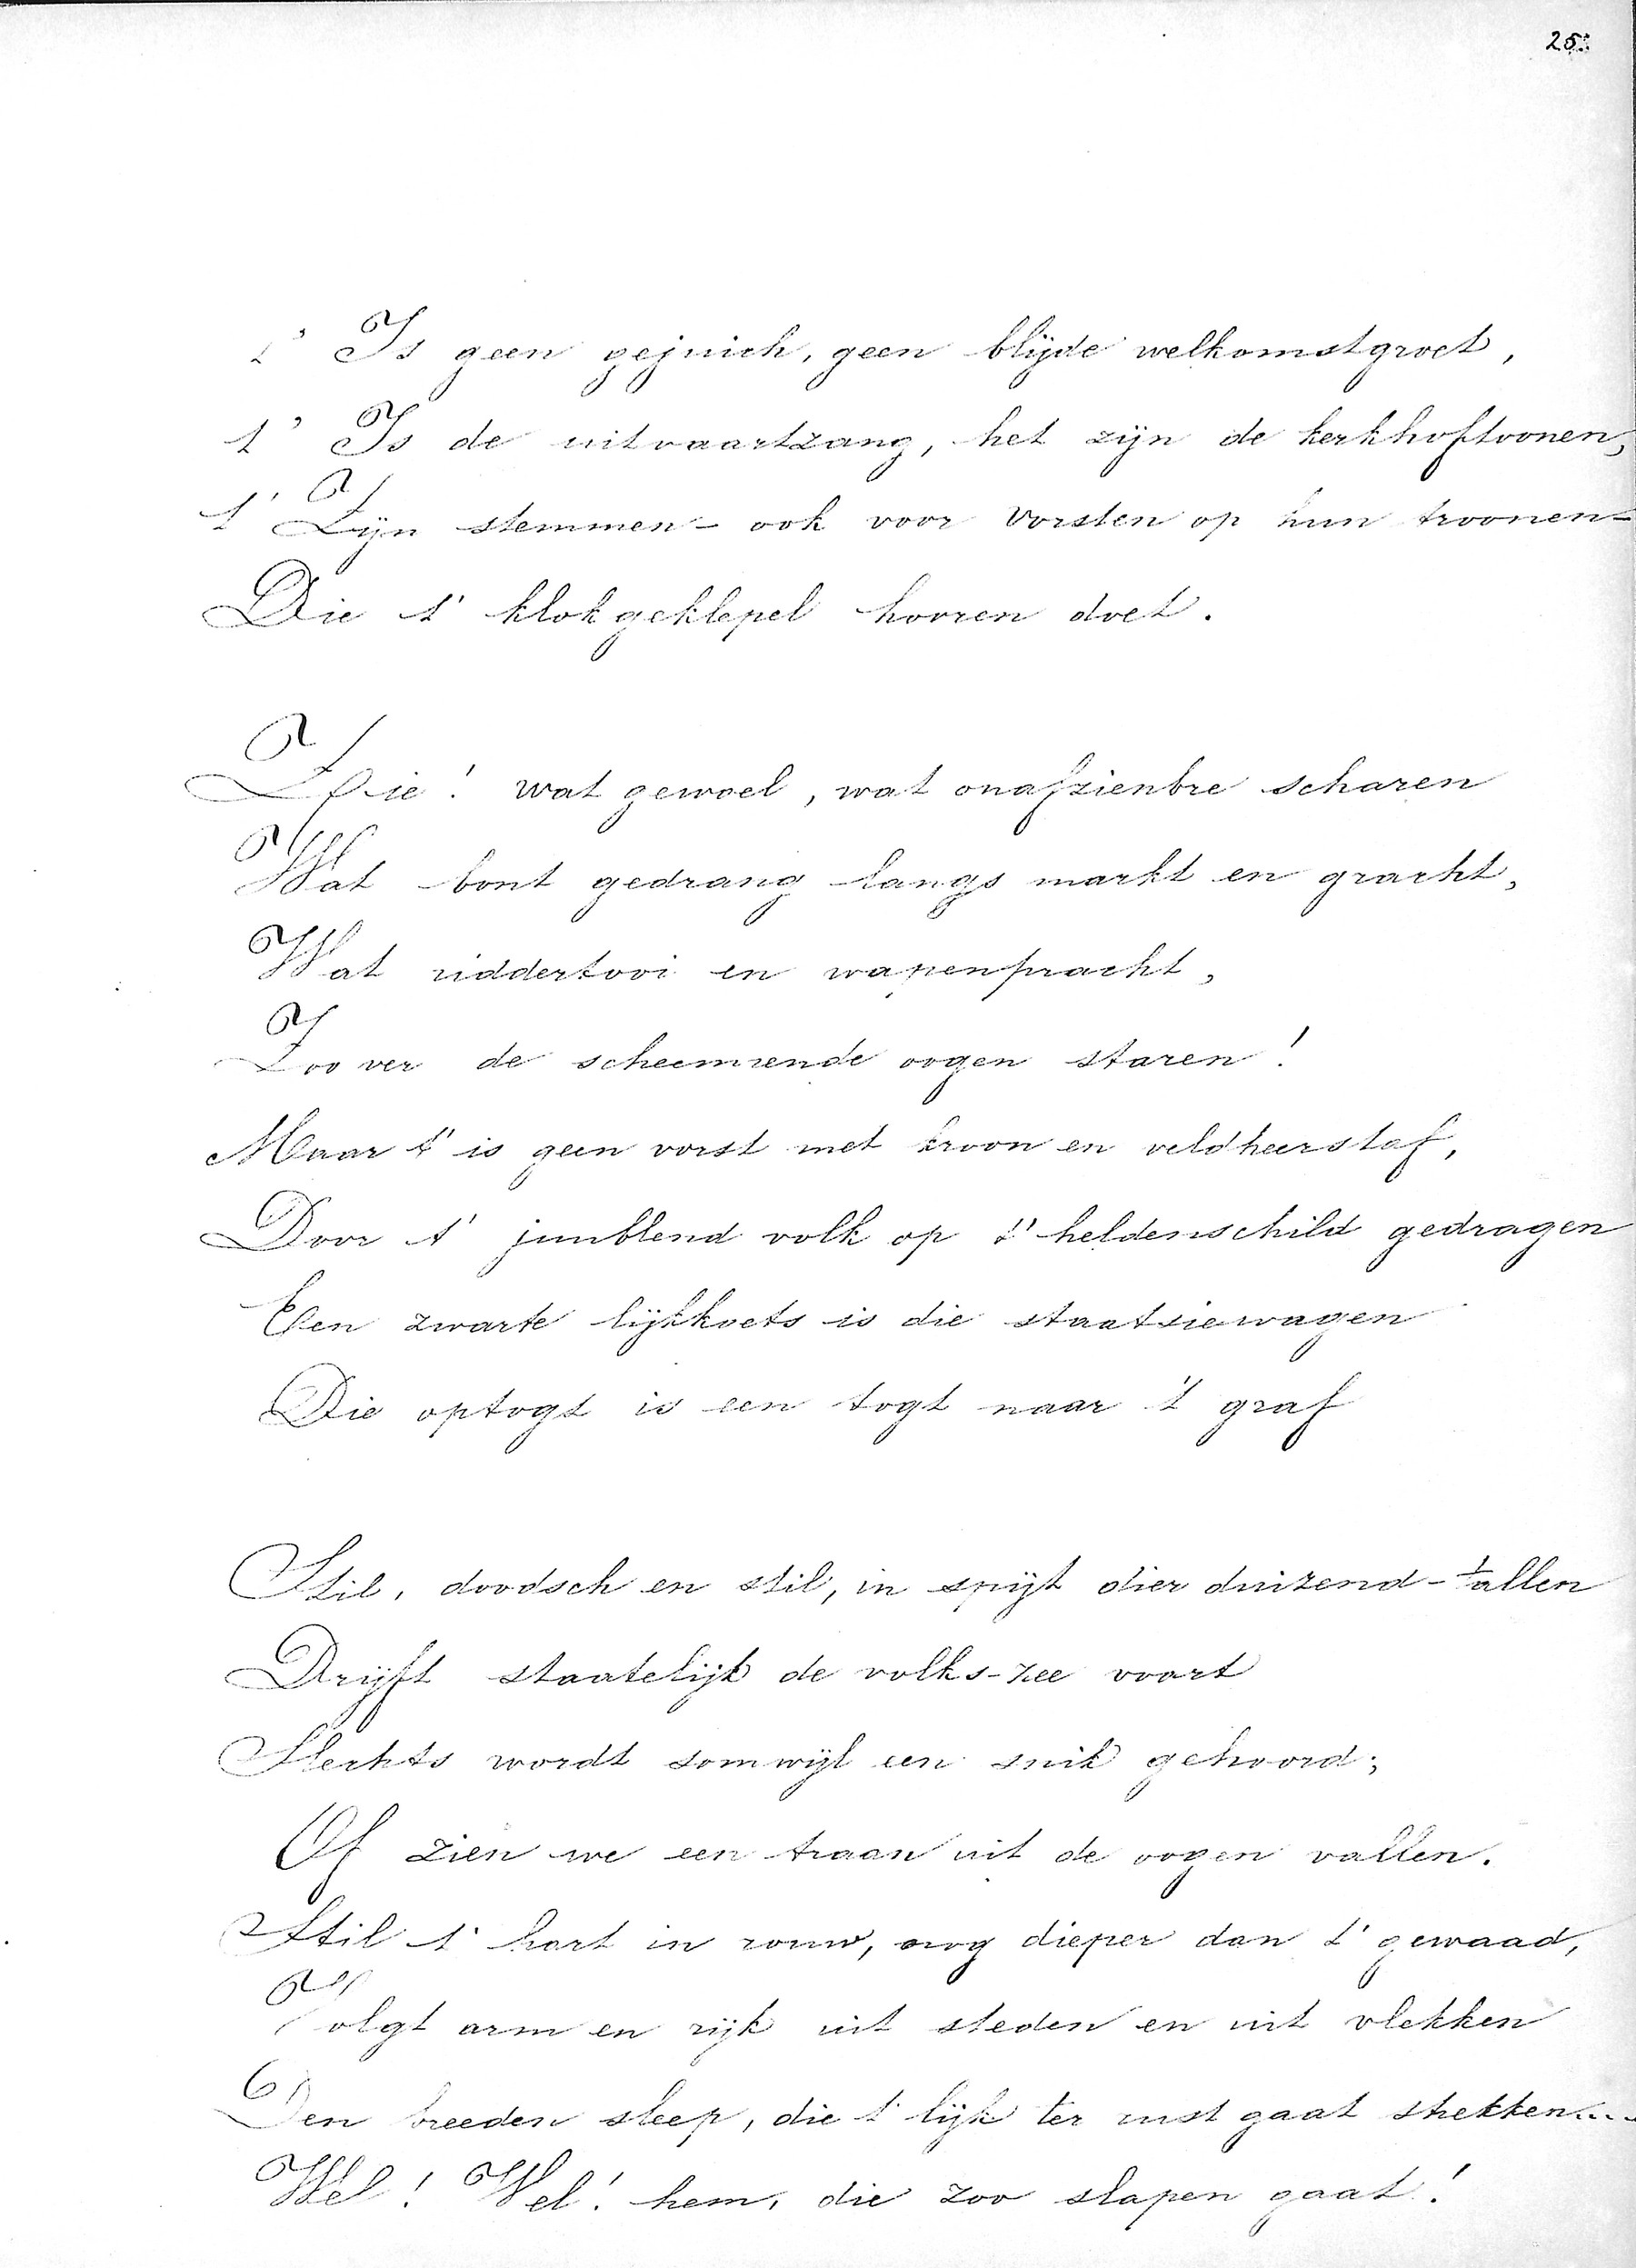 25.
t' Is geen gejuich, geen blijde welkomstgroet,
t' Is de uitvaartzang, het zijn de kerkhoftoonen,
t' Zijn stemmen - ook voor Vorsten op hun troonen -
Die t' klokgeklepel hooren doet.
Zie! wat gewoel, wat onafzienbre scharen
Wat bont gedrang langs markt en gracht,
Wat riddertooi en wapenpracht,
Zoo ver de scheemrende oogen staren!
Maar t' is geen vorst met kroon en veldheerstaf,
Door t' juublend volk op t' heldenschild gedragen
Een zwarte lijkkoets is die staatsiewagen
Die optogt is een togt naar 't graf
Stil, doodsch en stil, in spijt dier duizend-tallen
Drijft staatelijk de volks-zee voort
Slechts wordt somwijl een snik gehoord;
Of zien we een traan uit de oogen vallen.
Stil t' hart in rouw, nog dieper dan t' gewaad,
Volgt arm en rijk uit steden en uit vlekken
Den breeden sleep, die t' lijk ter rust gaat strekken....
Wel! Wel! hem, die zoo slapen gaat!